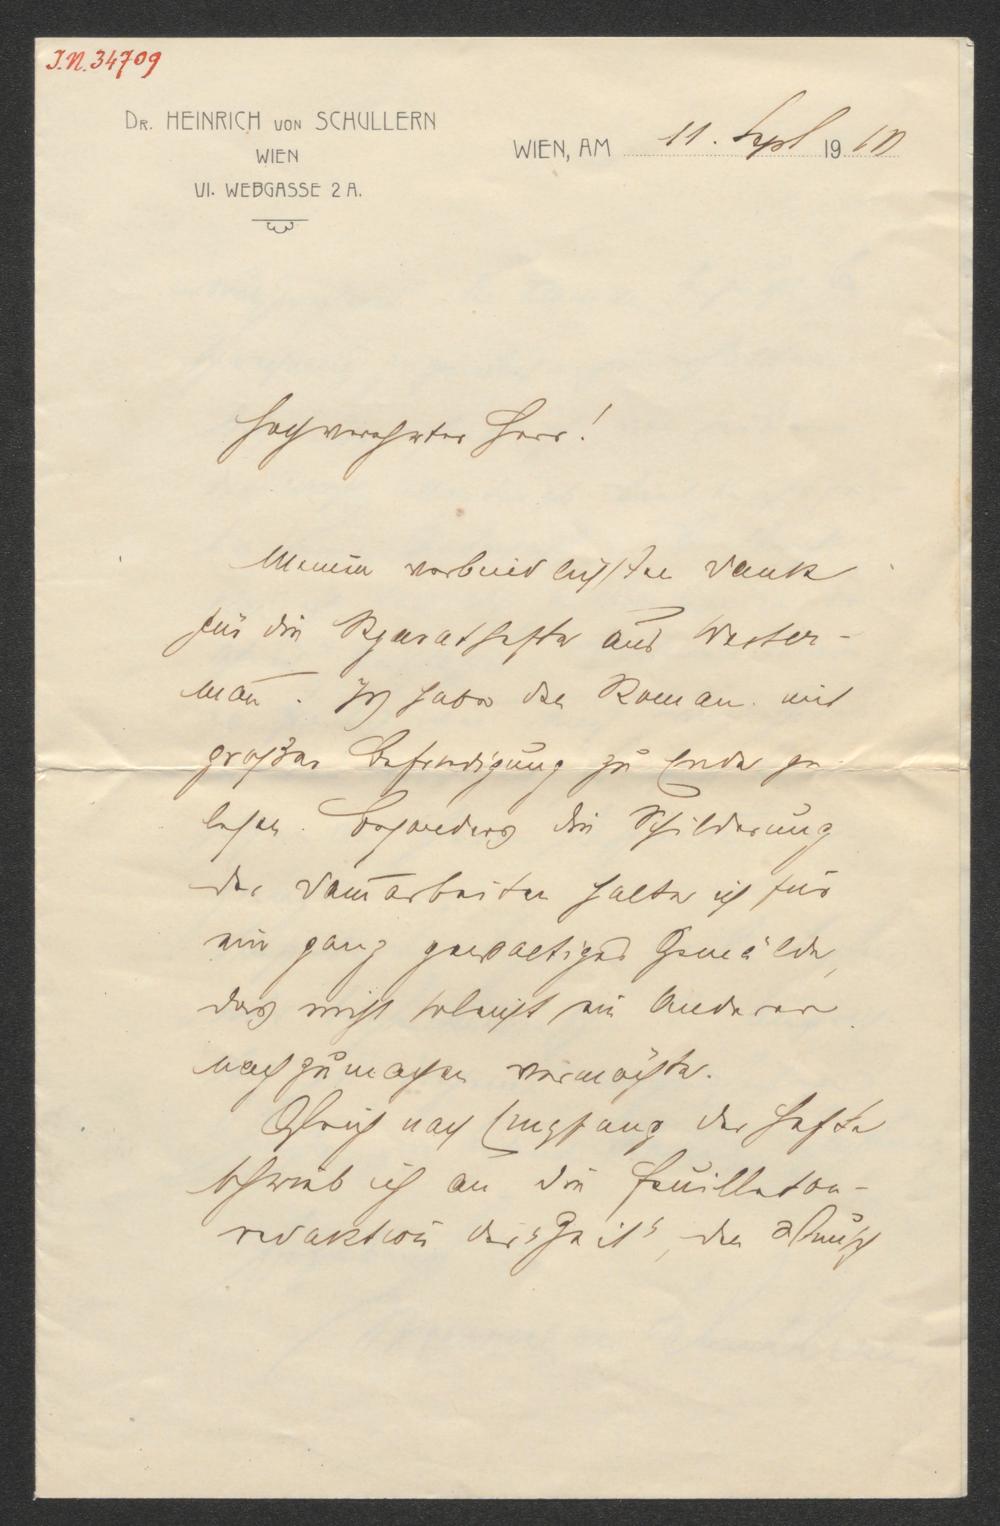 I.N. 34709
DR. HEINRICH VON SCHULLERN
WIEN
VI. WEBGASSE 2 A.
WIEN, AM 11. Sept 1910
Hochverehrter Herr!
Meinen verbindlichsten Dank
für die Separathefte aus Wester-
mann. Ich habe den Roman mit
großer Befriedigung zu Ende ge
lesen. Besonders die Schilderung
der Dammarbeiten halte ich für
ein ganz gewaltiges Gemälde,
das nicht so leicht ein Anderer
nachzumachen vermöchte.
Gleich nach Empfang der Hefte
schrieb ich an die Feuilleton-
redaktion der "Zeit", den Wunsch